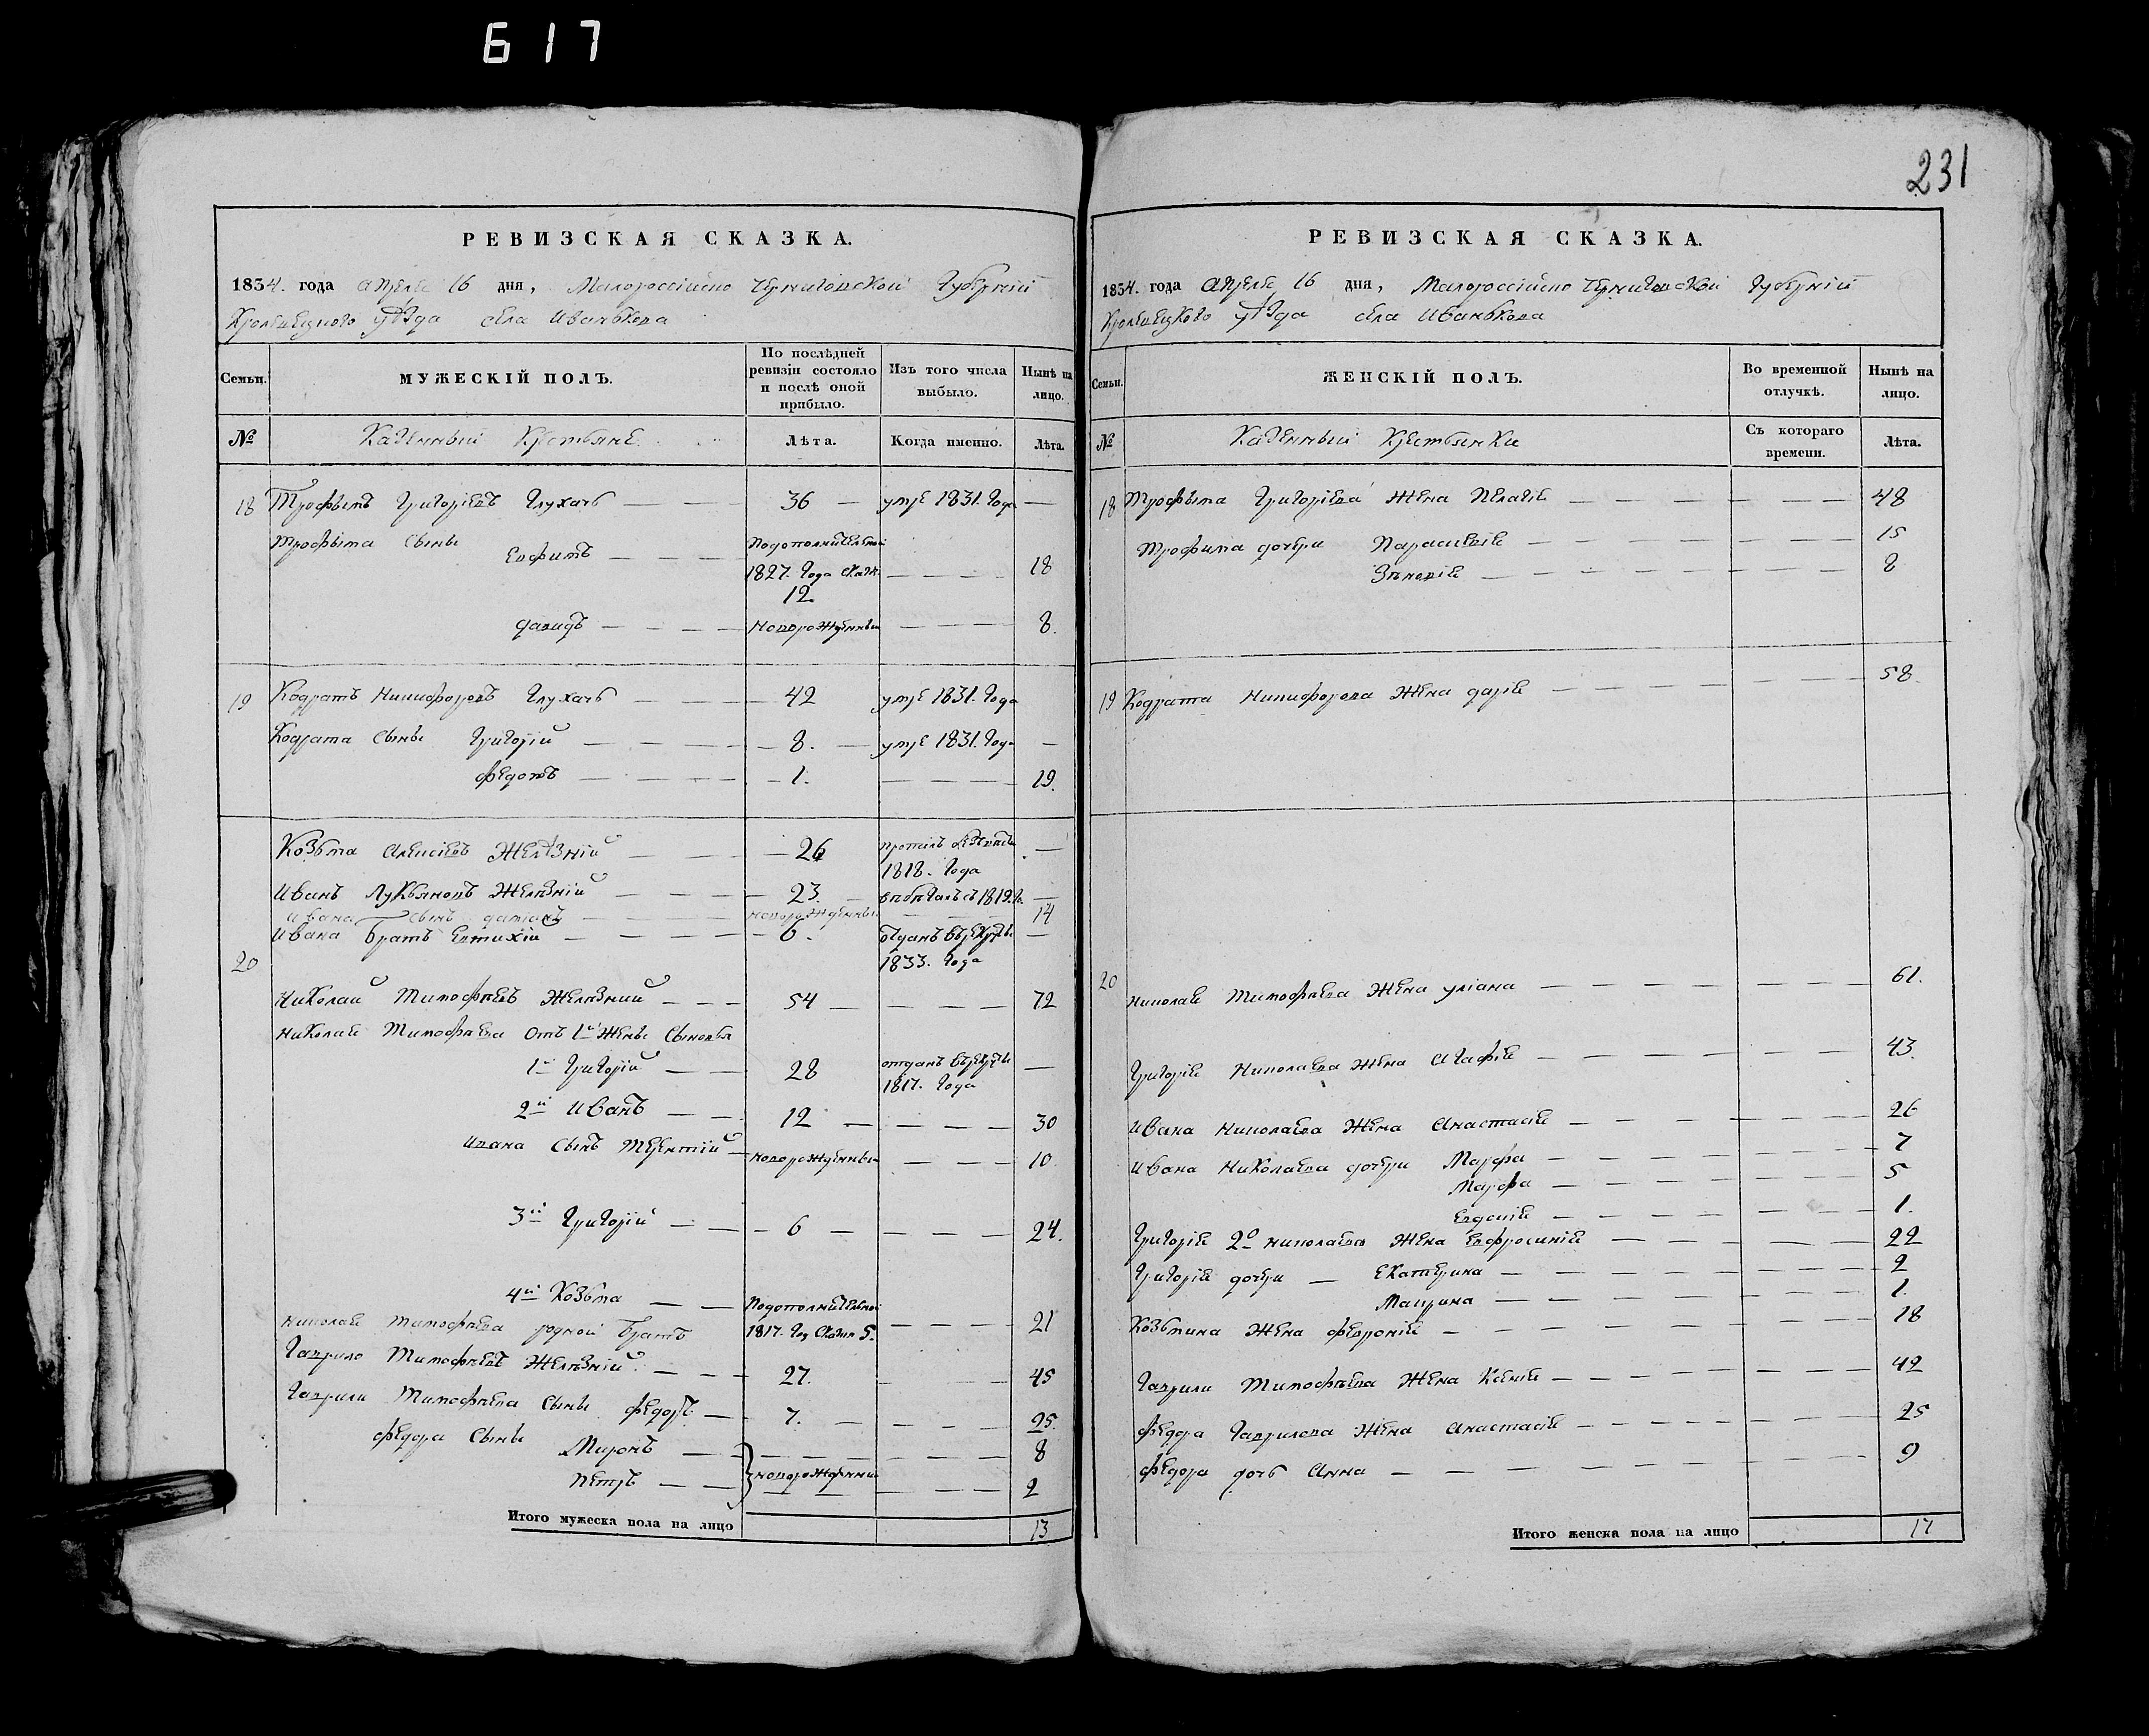 617
231
РЕВИЗСКАЯ СКАЗКА.
1834. года апреля 16 дня, Малороссійско Черниговской Губерніи
Кролевецкого уѣзда села Иванькова
Семьи.
МУЖЕСКІЙ ПОЛЪ.
По послѣдней ревизіи состояло и послѣ оной прибыло.
Изъ того числа выбыло.
Нынѣ на лицо.
№
Казенныи Крестьяне
Лѣта.
Когда именно.
Лѣта.
18 Трофымъ Григоріевъ Глухачь — 36 — умре 1831. года —
Трофыма сыны Евфимъ — по дополнительной 1827. года сказк. 12 — 18
Давидъ — новорожденный — 8.
19 Кодратъ Никифоровъ Глухачь — 42 умре 1831. года
Кодрата сыны Григорій — 8. — умре 1831. года —
Федотъ — 1. — 19.
20
Козьма Алексіевъ Желѣзній — 26 1818. года —
Иванъ Лукьяновъ Желѣзній — 23. — съ 1819. —
Ивана сынъ — новорожденный — 14
Ивана братъ Евтихій — 6. отданъ въ рекруты 1833. года —
Николай Тимофѣевъ Желѣзний — 54 — 72
Николая Тимофѣева отъ 1й жены сыновья
1й Григорій — 28 отданъ в рекруты 1817. года —
2й Иванъ — 12 — 30
Ивана сынъ Терентій — новорожденный — 10.
3й Григорій — 6 — 24.
4й Козьма — по дополнительной 1817. год сказки 5. — 21
Николая Тимофѣева родной братъ
Гаврило Тимофѣевъ Желѣзній — 27. — 45
Гаврили Тимофѣева сыны Федоръ — 7. — 25.
Федора сыны Миронъ — 8
Петръ — новорожденныи — 2
Итого мужеска пола на лицо 13
РЕВИЗСКАЯ СКАЗКА.
1834. года апреля 16 дня, Малороссійско Черниговской Губерніи
Кролевецкого уѣзда села Иванькова
Семьи.
ЖЕНСКІЙ ПОЛЪ.
Во временной отлучкѣ.
Нынѣ на лицо.
№
Казенныи Крестьянки
Съ котораго времени.
Лѣта.
18 Трофыма Григоріева жена Пелагія — 48
Трофима дочери Параскевія — 15
Зѣновія — 8
19 Кодрата Никифорова жена Дарія — 58.
20 Николая Тимофѣева жена Уліана — 61.
Григорія Николаева жена Агафія — 43.
Ивана Николаева жена Анастасія — 26
Ивана Николаева дочери Марфа — 7
Марфа — 5
Евдокія — 1.
Григорія 2о Николаева жена Евфросинія — 22
Григорія дочери — Екатерина — 2
Маврина — 1.
Козьмина жена Феврония — 18
Гаврили Тимофѣева жена Ксенія — 42
Федора Гаврилова жена Анастасія — 25
Федора дочь Анна — 9
Итого женска пола на лицо 17